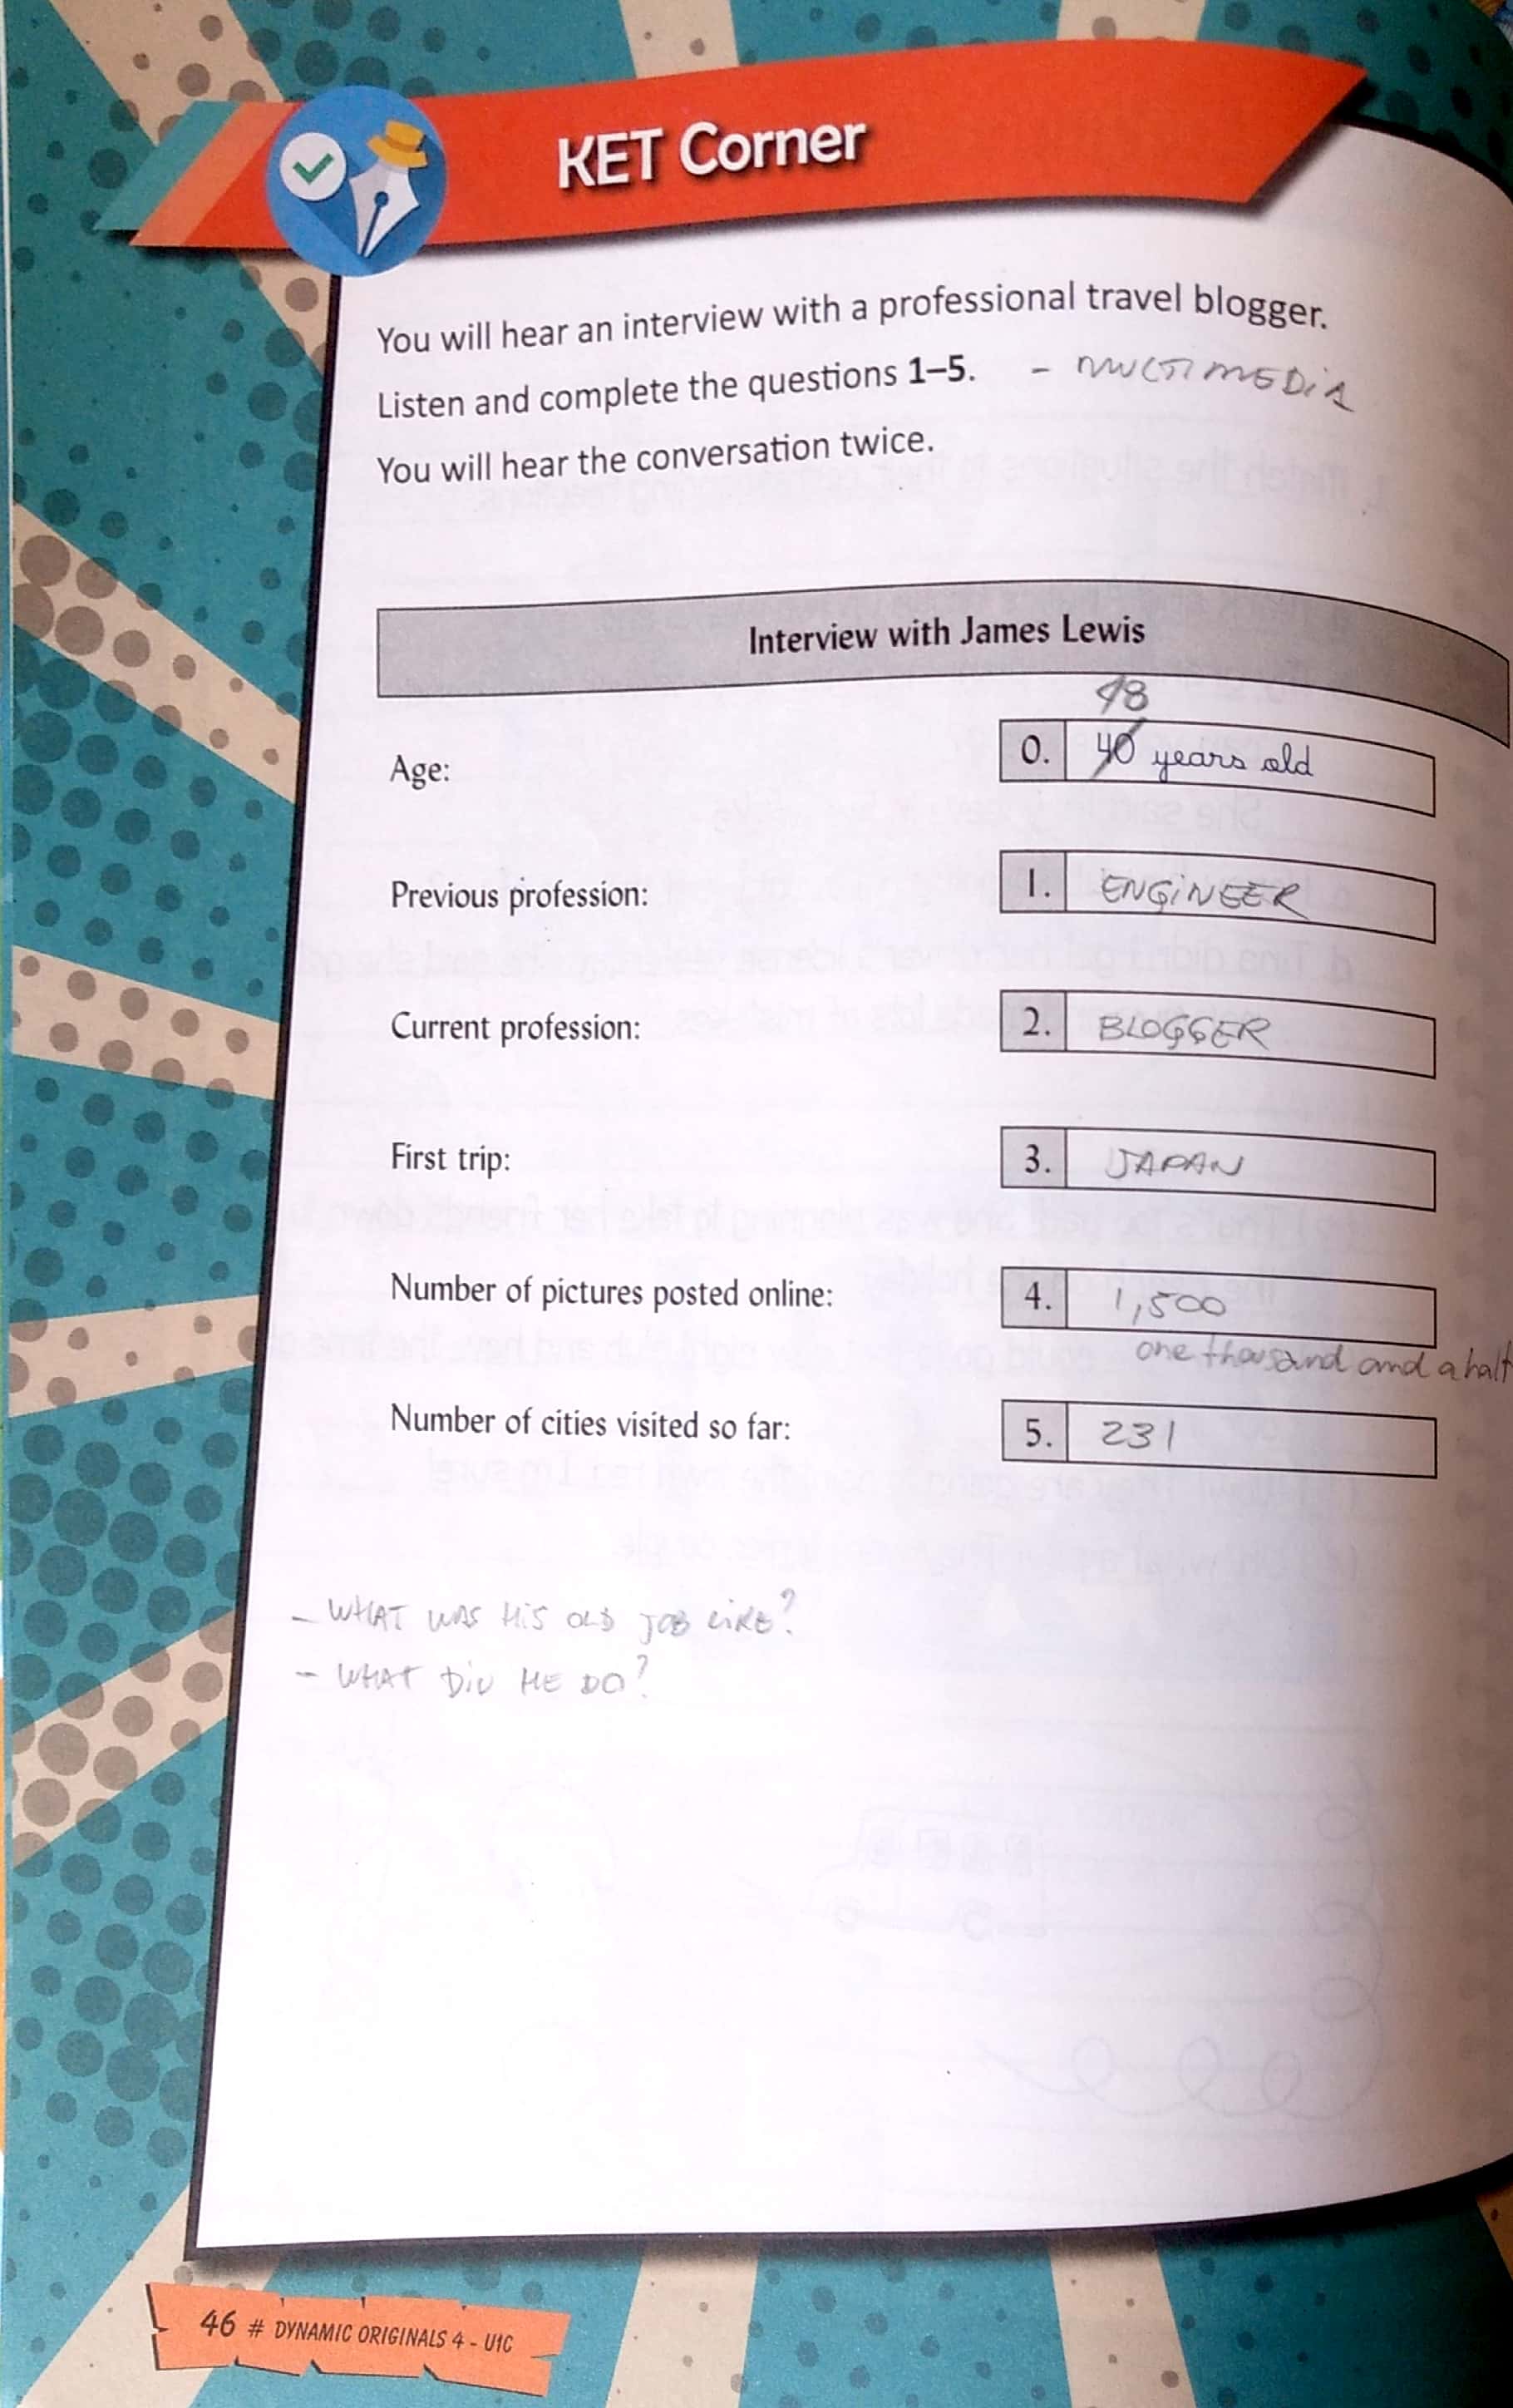 KET Corner
You will hear an interview with a professional travel blogger.
Listen and complete the questions 1–5. - MULTIMEDIA
You will hear the conversation twice.
Interview with James Lewis
48
Age: 0. 40 years old
Previous profession: 1. ENGINEER
Current profession: 2. BLOGGER
First trip: 3. JAPAN
Number of pictures posted online: 4. 1,500
one thousand and a half
Number of cities visited so far: 5. 231
- WHAT WAS HIS OLD JOB LIKE?
- WHAT DID HE DO?
46 # DYNAMIC ORIGINALS 4 - U1C